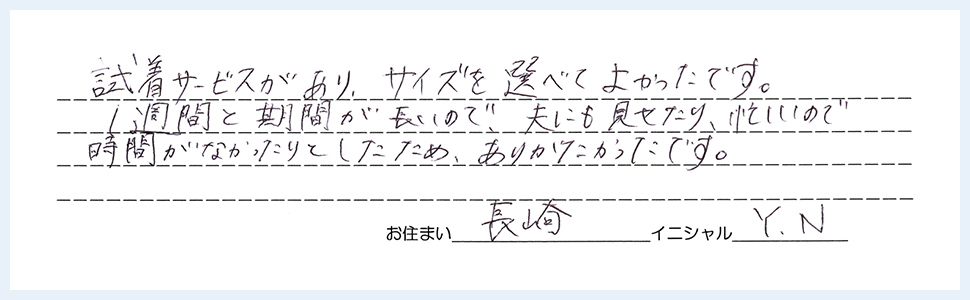 試着サービスがあり、サイズを選べてよかったです。
1週間と期間が長いので、夫にも見せたり、忙しいので
時間がなかったりとしたため、ありがたかったです。
お住まい 長崎 イニシャル Y.N